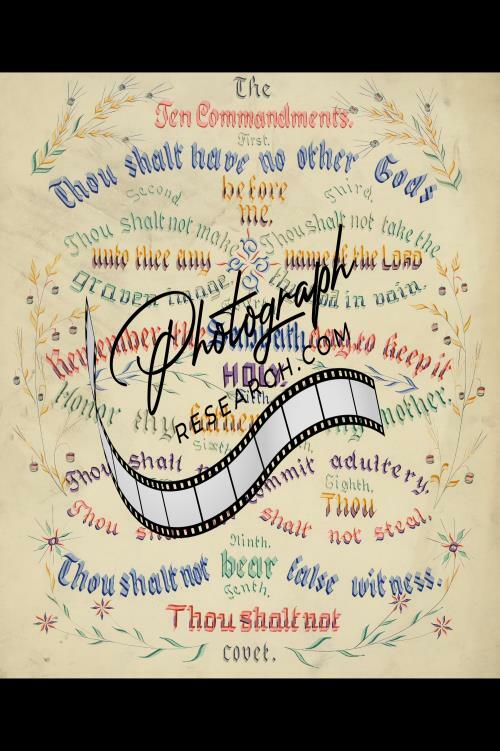 The
Ten Commandments.
First.
Thou shalt have no other Gods
before
me.
Second. Third.
Thou shalt not make Thou shalt not take the
unto thee any name of the LORD
graven image. in vain.
Remember the Sabbath day, to keep it
HOLY.
Honor thy mother.
Thou shalt commit adultery.
Eighth.
Thou
Thou shalt not steal.
Ninth.
Thou shalt not bear false witness.
Tenth.
Thou shalt not
covet.
Photograph
RESEARCH.COM